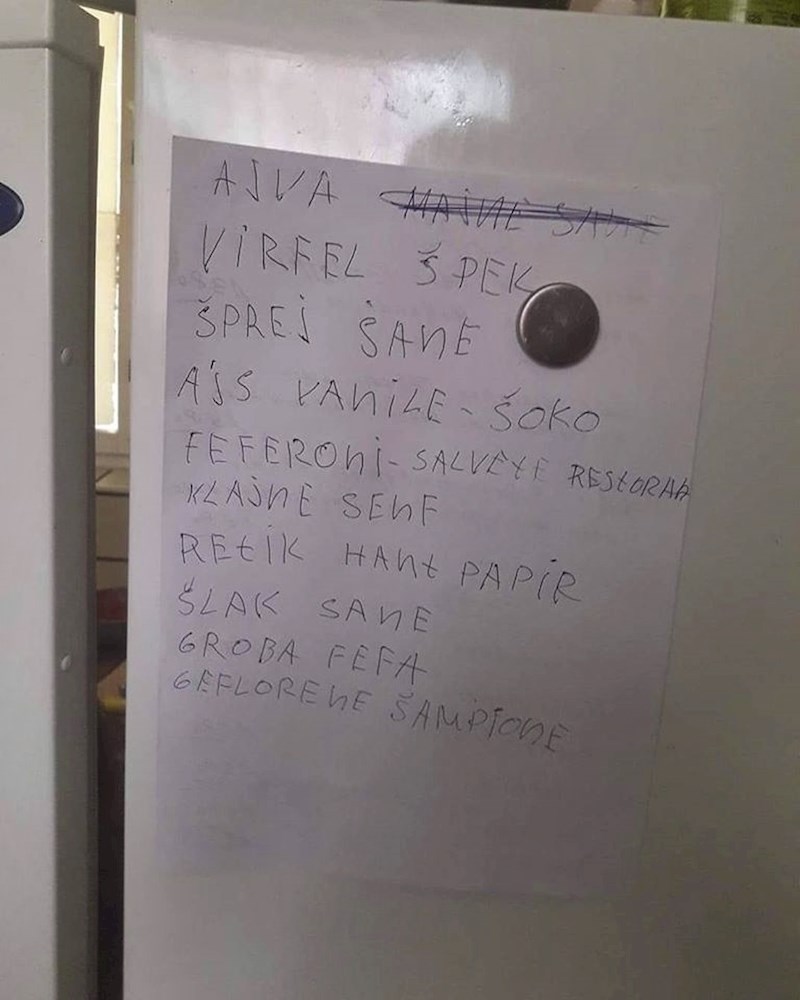 AJVA
VİRFEL ŠPEK
ŠPREJ ŠANE
AJS VANİLE - ŠOKO
FEFERONİ - SALVETE RESTORAN
KLAJNE SENF
RETİK HANT PAPİR
ŠLAK SANE
GROBA FEFA
GEFLORENE ŠAMPİONE